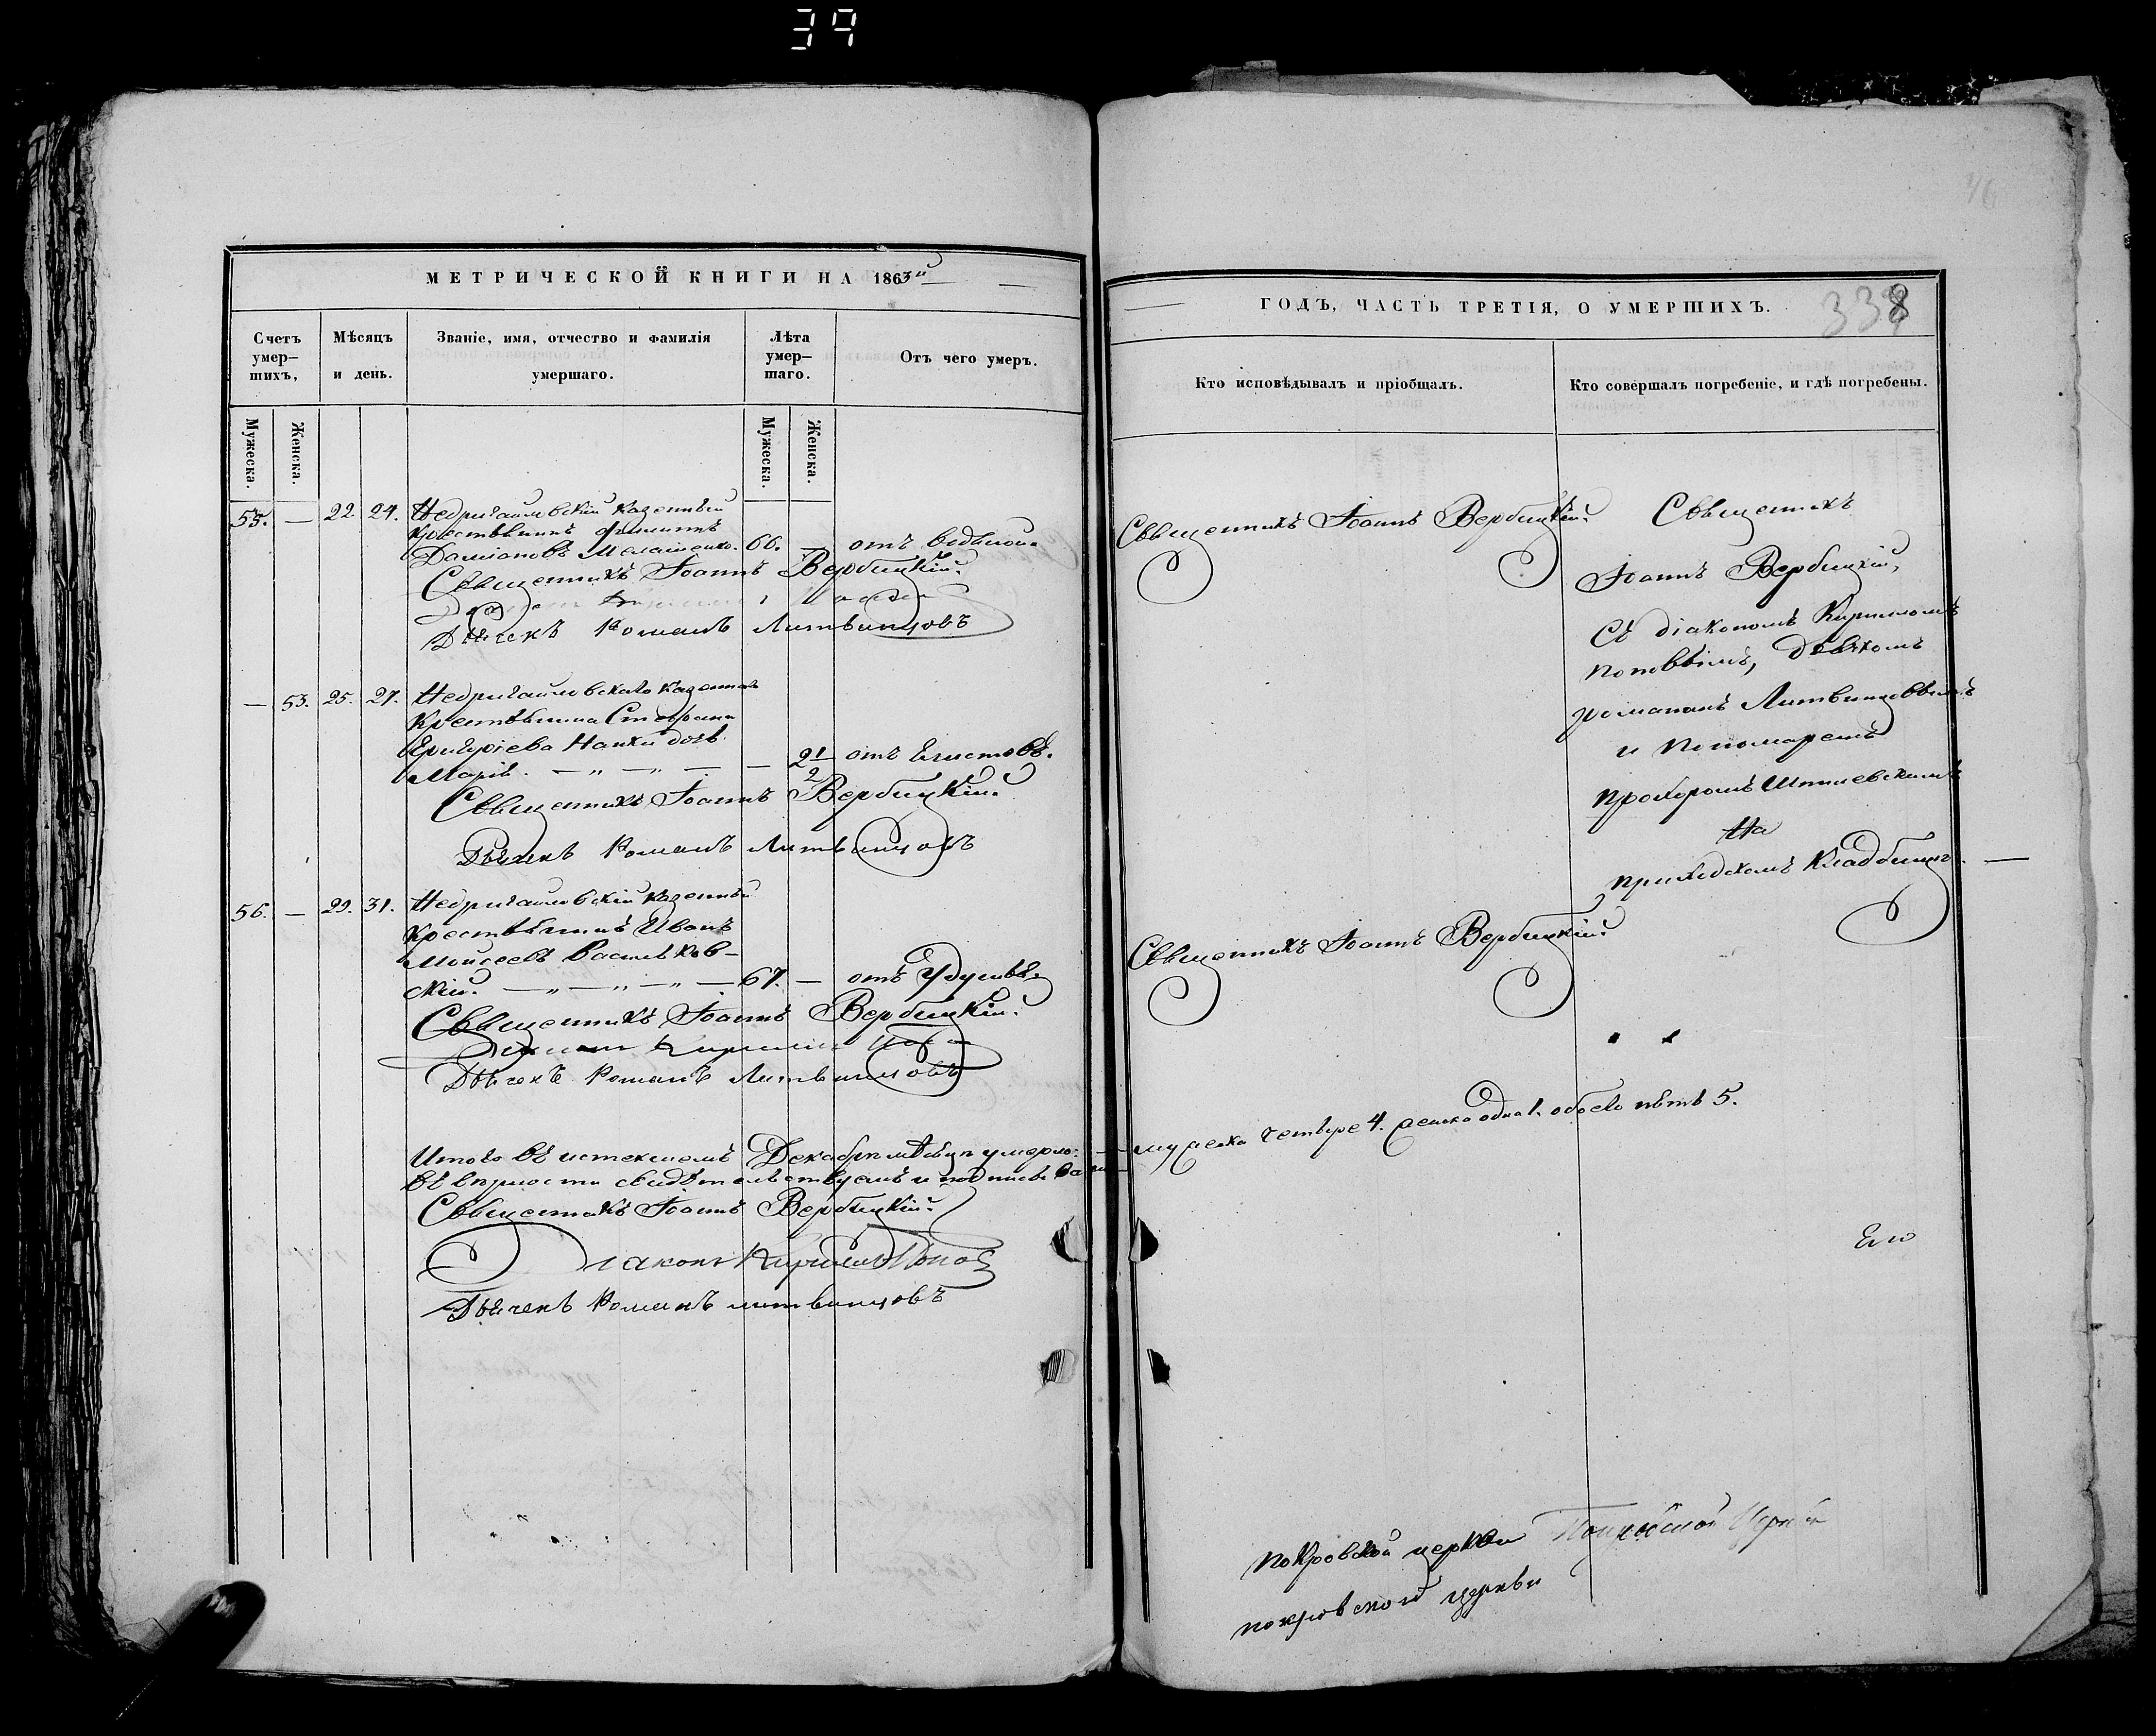 39
МЕТРИЧЕСКОЙ КНИГИ НА 1863й
Счетъ умер– шихъ,
Мѣсяцъ и день.
Званіе, имя, отчество и фамилія умершаго.
Лѣта умер– шаго.
Отъ чего умеръ.
Мужеска.
Женска.
Мужеска.
Женска.
55. — 22. 24. Недригайловскій казенный
крестьянинъ Филиппъ
Даміановъ 66. — отъ водяной.
Священникъ Іоаннъ Вербицкій.
Дьячекъ Романъ Литвинцовъ
— 53. 25. 27. Недригайловскаго казеннаго
крестьянина Стефана
Григоріева дочь
Марія. — „ — „ — — 2 1/2 отъ глистовъ.
Священникъ Іоаннъ Вербицкій.
Дьячекъ Романъ Литвинцовъ
56. — 29. 31. Недригайловскій казенный
крестьянинъ Иванъ
Моисеевъ Васильков–
скій. — „ — „ — „ — 67. — отъ удушья.
Священникъ Іоаннъ Вербицкій.
Діаконъ Кириллъ Поповъ
Дьячекъ Романъ Литвинцовъ
Итого въ истекшемъ Декабрѣ мѣсяцѣ умерло: —
въ вѣрности свидѣтельствуемъ и подписъ
Священникъ Іоаннъ Вербицкій.
Діаконъ Кириллъ Поповъ
Дьячекъ Романъ Литвинцовъ
338
ГОДЪ, ЧАСТЬ ТРЕТІЯ, О УМЕРШИХЪ.
Кто исповѣдывалъ и пріобщалъ.
Кто совершалъ погребеніе, и гдѣ погребены.
Священникъ Іоаннъ Вербицкій.
Священникъ
Іоаннъ Вербицкій,
съ діакономъ Кирилломъ
Поповымъ, дьячкомъ
Романомъ Литвинцовымъ
и пономаремъ
Прохоромъ
На
приходскомъ кладбищѣ. —
Священникъ Іоаннъ Вербицкій.
мужеска четыре 4. женска одна 1. обоего пять 5.
покровской церкви Покровской Церкви
покровской церкви